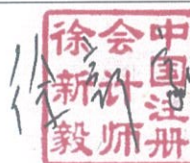 中国注册
会计师
徐新毅
徐新毅